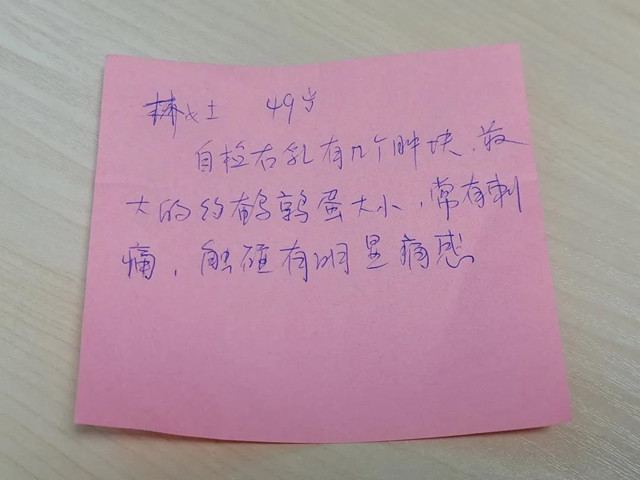 林女士 49岁
自检右乳有几个肿块,最
大的约鹌鹑蛋大小,常有刺
痛,触碰有明显痛感